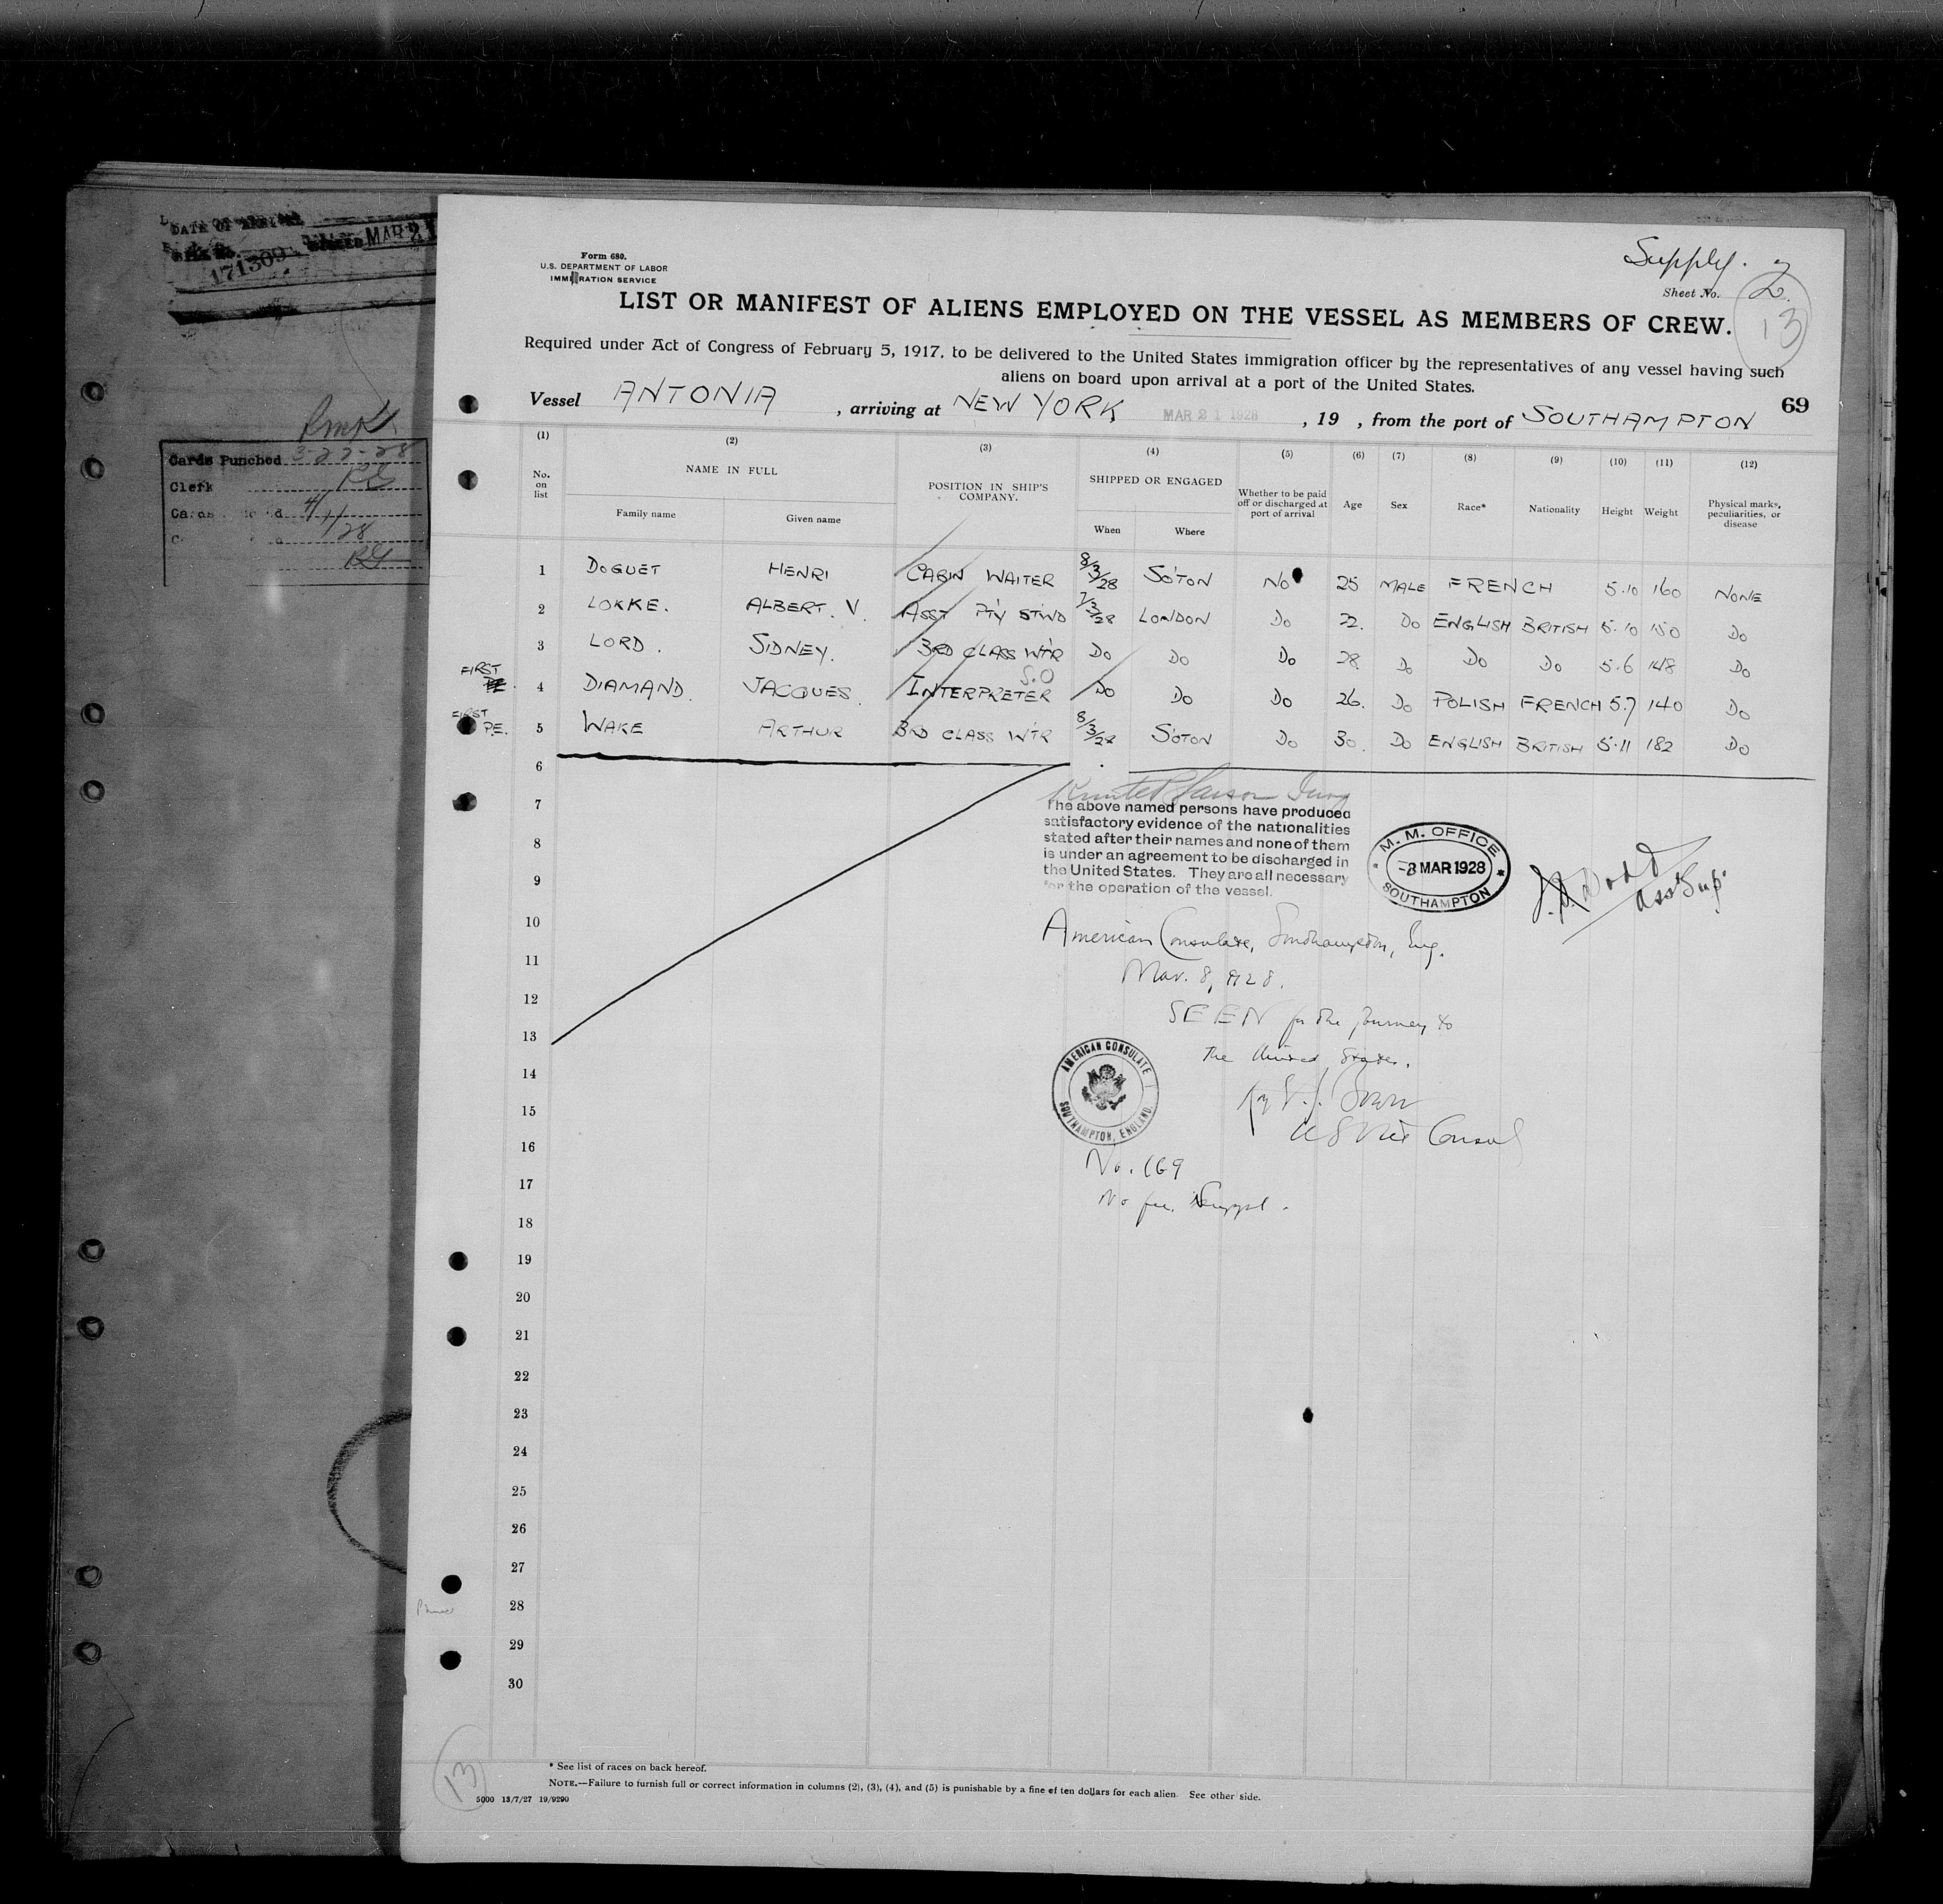 DATE OF
171309 MAR 21
Cards Punched 3-22-28
Clerk
4/1/28
Supply. 2
Form 680.
U.S. DEPARTMENT OF LABOR
IMMIGRATION SERVICE
Sheet No. 2
13
LIST OR MANIFEST OF ALIENS EMPLOYED ON THE VESSEL AS MEMBERS OF CREW.
Required under Act of Congress of February 5, 1917, to be delivered to the United States immigration officer by the representatives of any vessel having such
aliens on board upon arrival at a port of the United States.
69
Vessel ANTONIA , arriving at NEW YORK MAR 21 1928 , 19 , from the port of SOUTHAMPTON
(1) (2) (3) (4) (5) (6) (7) (8) (9) (10) (11) (12)
No. on list NAME IN FULL POSITION IN SHIP'S COMPANY. SHIPPED OR ENGAGED Whether to be paid off or discharged at port of arrival Age Sex Race* Nationality Height Weight Physical marks, peculiarities, or disease
Family name Given name When Where
1 DOGUET HENRI CABIN WAITER 8/3/28 SO'TON NO 25 MALE FRENCH 5.10 160 NONE
2 LOKKE. ALBERT. V. ASST P'TY STWD 7/3/28 LONDON DO 22. DO ENGLISH BRITISH 5.10 150 DO
3 LORD. SIDNEY. 3RD CLASS WTR DO DO DO 28 DO DO DO 5.6 148 DO
S.O
FIRST 4 DIAMAND. JACQUES. INTERPRETER DO DO DO 26. DO POLISH FRENCH 5.7 140 DO
FIRST P.E. 5 WAKE ARTHUR 3RD CLASS WTR 8/3/28 SO'TON DO 30. DO ENGLISH BRITISH 5.11 182 DO
6
7
The above named persons have produced
satisfactory evidence of the nationalities
stated after their names and none of them
is under an agreement to be discharged in
the United States. They are all necessary
for the operation of the vessel.
M. M. OFFICE
-8 MAR 1928
SOUTHAMPTON
Asst Sup.
8
9
10
American Consulate, Southampton, Eng.
11
Mar. 8, 1928.
12
SEEN for the journey to
13
the United States.
14
AMERICAN CONSULATE
SOUTHAMPTON, ENGLAND.
15
US Vice Consul
16
No. 169
17
No fee, Suppl.
18
19
20
21
22
23
24
25
26
27
28
29
30
13
* See list of races on back hereof.
NOTE.—Failure to furnish full or correct information in columns (2), (3), (4), and (5) is punishable by a fine of ten dollars for each alien. See other side.
5000 13/7/27 19/9290